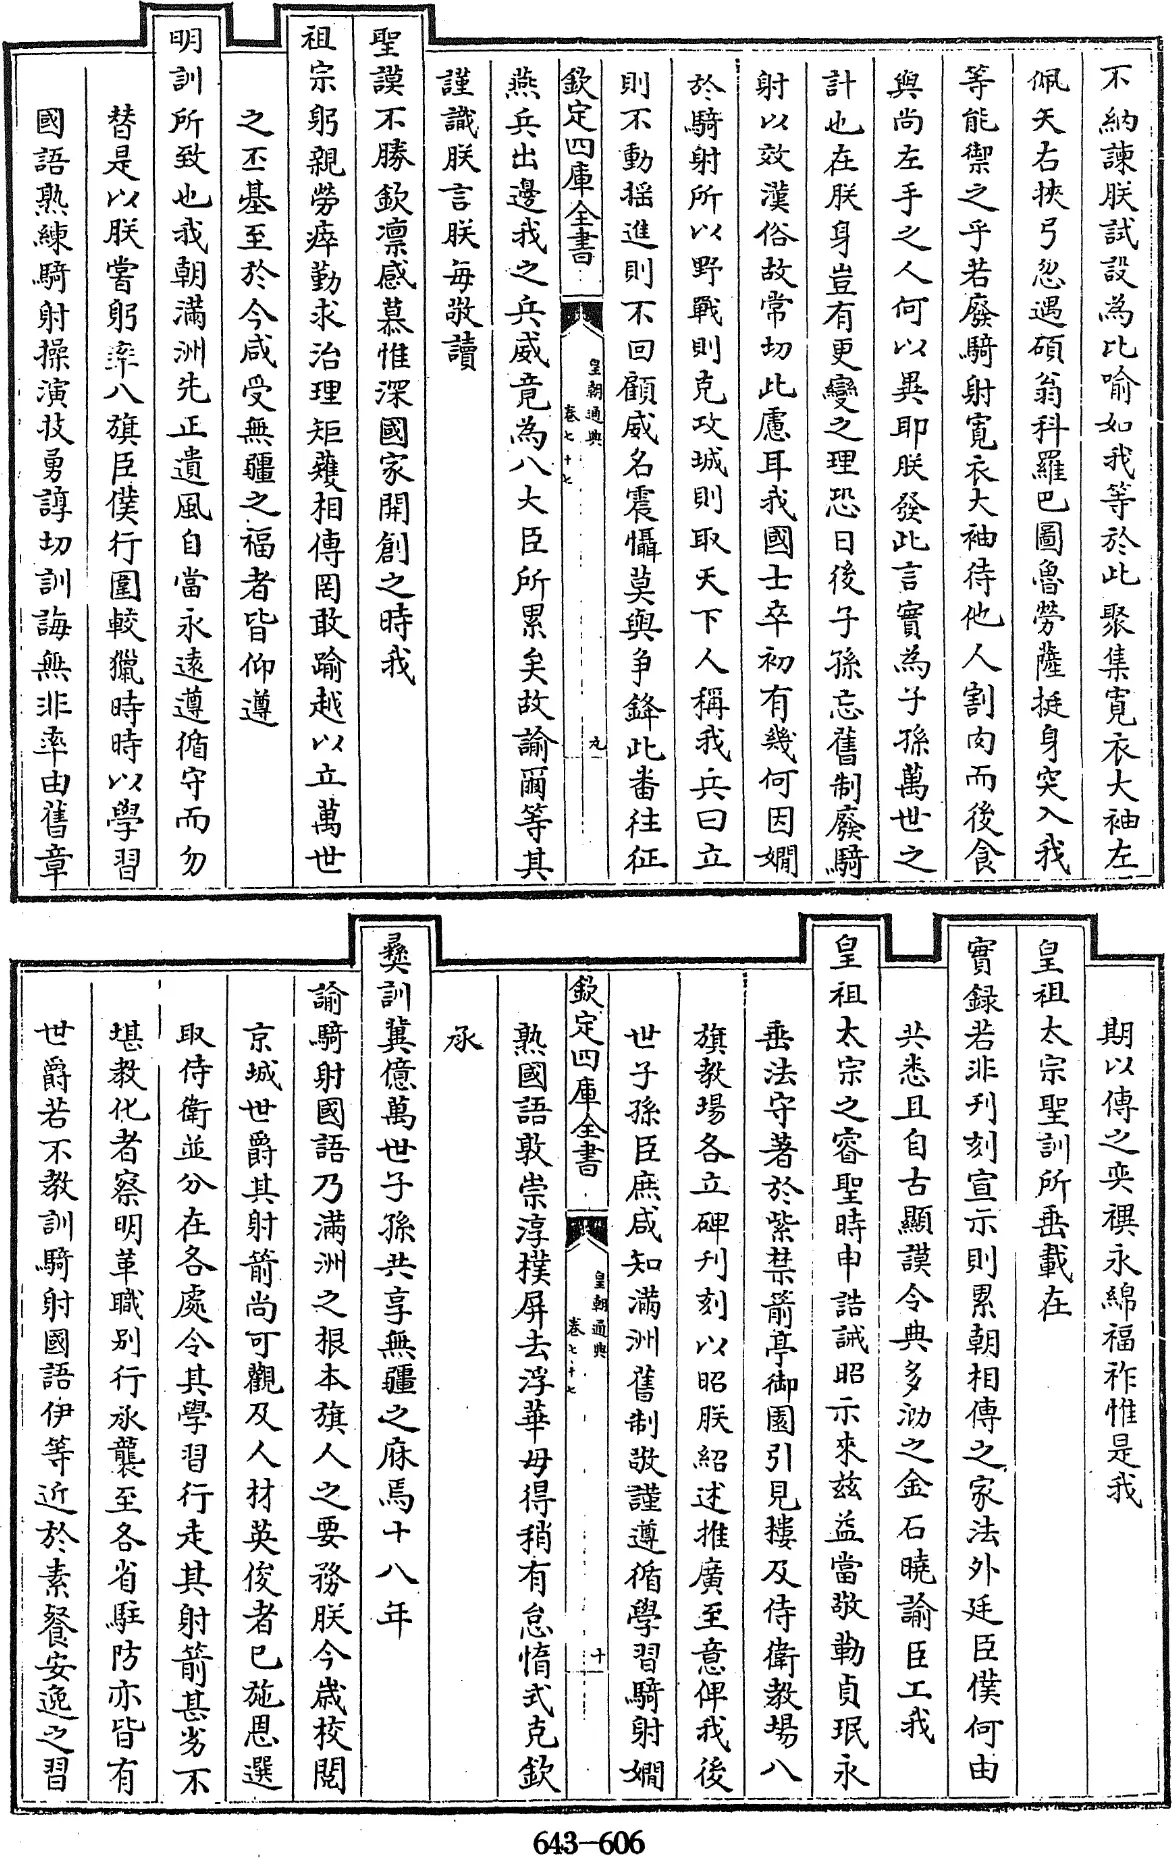 不納諫朕試設為比喻如我等於此聚集寛衣大袖左
佩矢右挾弓忽遇碩翁科羅巴圖魯勞薩挺身突入我
等能禦之乎若廢騎射寛衣大袖待他人割肉而後食
與尚左手之人何以異耶朕發此言實為子孫萬世之
計也在朕身豈有更變之理恐日後子孫忘舊制廢騎
射以效漢俗故常切此慮耳我國士卒初有幾何因嫺
於騎射所以野戰則克攻城則取天下人稱我兵曰立
則不動搖進則不回顧威名震懾莫與争鋒此番往征
欽定四庫全書
皇朝通典
卷七十七
九
燕兵出邊我之兵威竟為八大臣所累矣故諭爾等其
謹識朕言朕每敬讀
聖謨不勝欽凛感慕惟深國家開創之時我
祖宗躬親勞瘁勤求治理矩矱相傳罔敢踰越以立萬世
之丕基至於今咸受無疆之福者皆仰遵
明訓所致也我朝滿洲先正遺風自當永遠遵循守而勿
替是以朕嘗躬率八旗臣僕行圍較獵時時以學習
國語熟練騎射操演技勇諄切訓誨無非率由舊章
期以傳之奕禩永綿福祚惟是我
皇祖太宗聖訓所垂載在
實録若非刋刻宣示則累朝相傳之家法外廷臣僕何由
共悉且自古顯謨令典多泐之金石曉諭臣工我
皇祖太宗之睿聖時申誥誡昭示來兹益當敬勒貞珉永
垂法守著於紫禁箭亭御園引見樓及侍衛教場八
旗教場各立碑刋刻以昭朕紹述推廣至意俾我後
世子孫臣庶咸知滿洲舊制敬謹遵循學習騎射嫺
欽定四庫全書
皇朝通典
卷七十七
十
熟國語敦崇淳樸屏去浮華毋得稍有怠惰式克欽
承
彝訓冀億萬世子孫共享無疆之庥焉十八年
諭騎射國語乃滿洲之根本旗人之要務朕今歲校閲
京城世爵其射箭尚可觀及人材英俊者已施恩選
取侍衛並分在各處令其學習行走其射箭甚劣不
堪教化者察明革職别行承襲至各省駐防亦皆有
世爵若不教訓騎射國語伊等近於素餐安逸之習
643-606